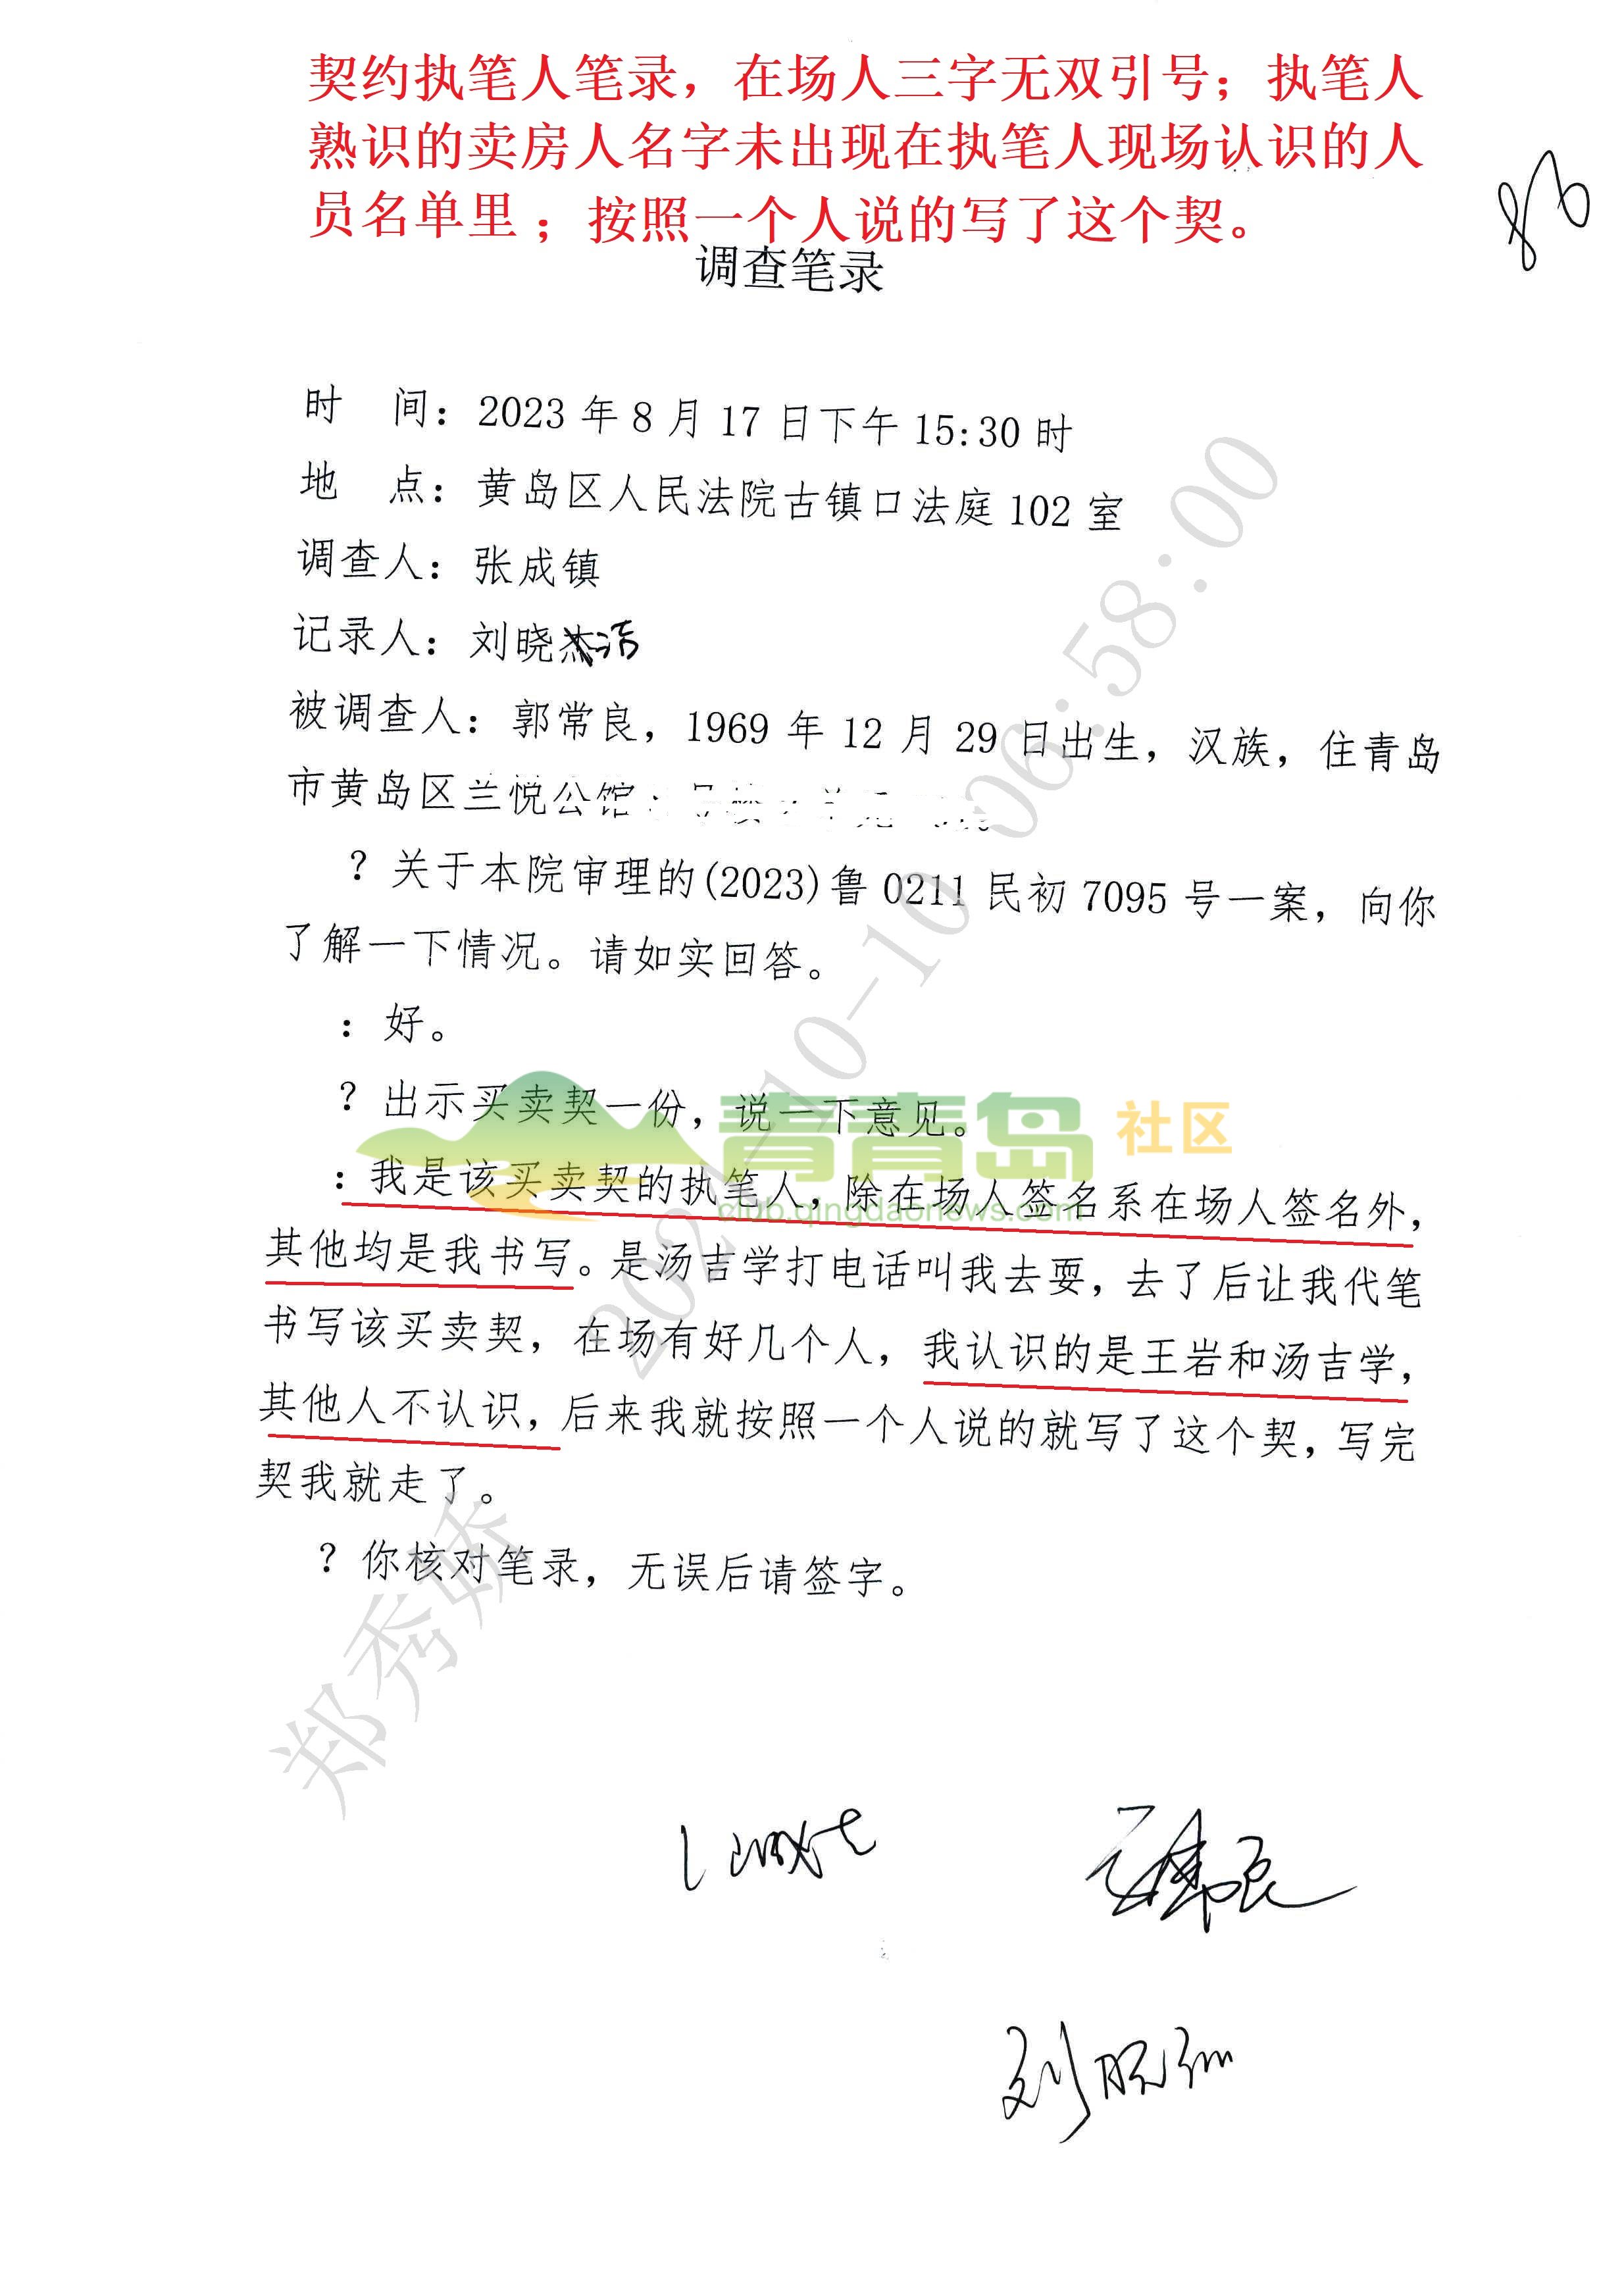 契约执笔人笔录，在场人三字无双引号；执笔人
熟识的卖房人名字未出现在执笔人现场认识的人
员名单里；按照一个人说的写了这个契。
调查笔录
时 间：2023年8月17日下午15:30时
地 点：黄岛区人民法院古镇口法庭102室
调查人：张成镇
记录人：刘晓
被调查人：郭常良，1969年12月29日出生，汉族，住青岛
市黄岛区兰悦公馆
？关于本院审理的(2023)鲁0211民初7095号一案，向你
了解一下情况。请如实回答。
：好。
？出示买卖契一份，说一下意见。
青青岛 社区
club.qingdaonews.com
：我是该买卖契的执笔人，除在场人签名系在场人签名外，
其他均是我书写。是汤吉学打电话叫我去耍，去了后让我代笔
书写该买卖契，在场有好几个人，我认识的是王岩和汤吉学，
其他人不认识，后来我就按照一个人说的就写了这个契，写完
契我就走了。
？你核对笔录，无误后请签字。
郑秀娇 2024-10-10 06:58:00